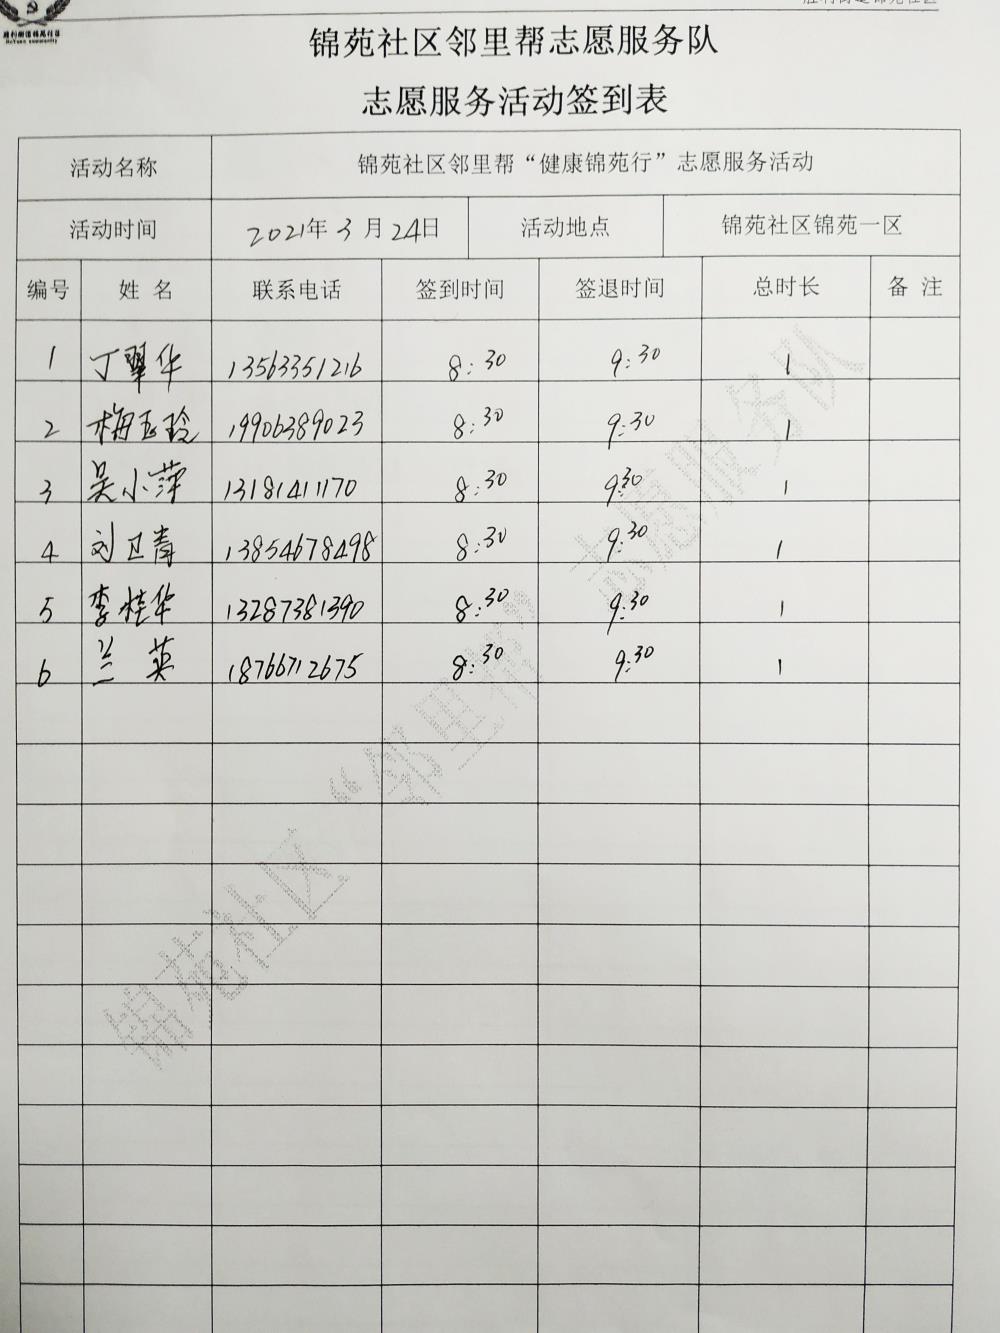 胜利街道锦苑社区
锦苑社区邻里帮志愿服务队
志愿服务活动签到表
活动名称 锦苑社区邻里帮“健康锦苑行”志愿服务活动
活动时间 2021年 3月 24日 活动地点 锦苑社区锦苑一区
编号 姓 名 联系电话 签到时间 签退时间 总时长 备 注
1 丁翠华 13563351216 8:30 9:30 1
2 梅玉玲 19906389023 8:30 9:30 1
3 吴小萍 13181411170 8:30 9:30 1
4 刘卫青 13854678498 8:30 9:30 1
5 李桂华 13287381390 8:30 9:30 1
6 兰英 18766712675 8:30 9:30 1
锦苑社区“邻里帮”志愿服务队